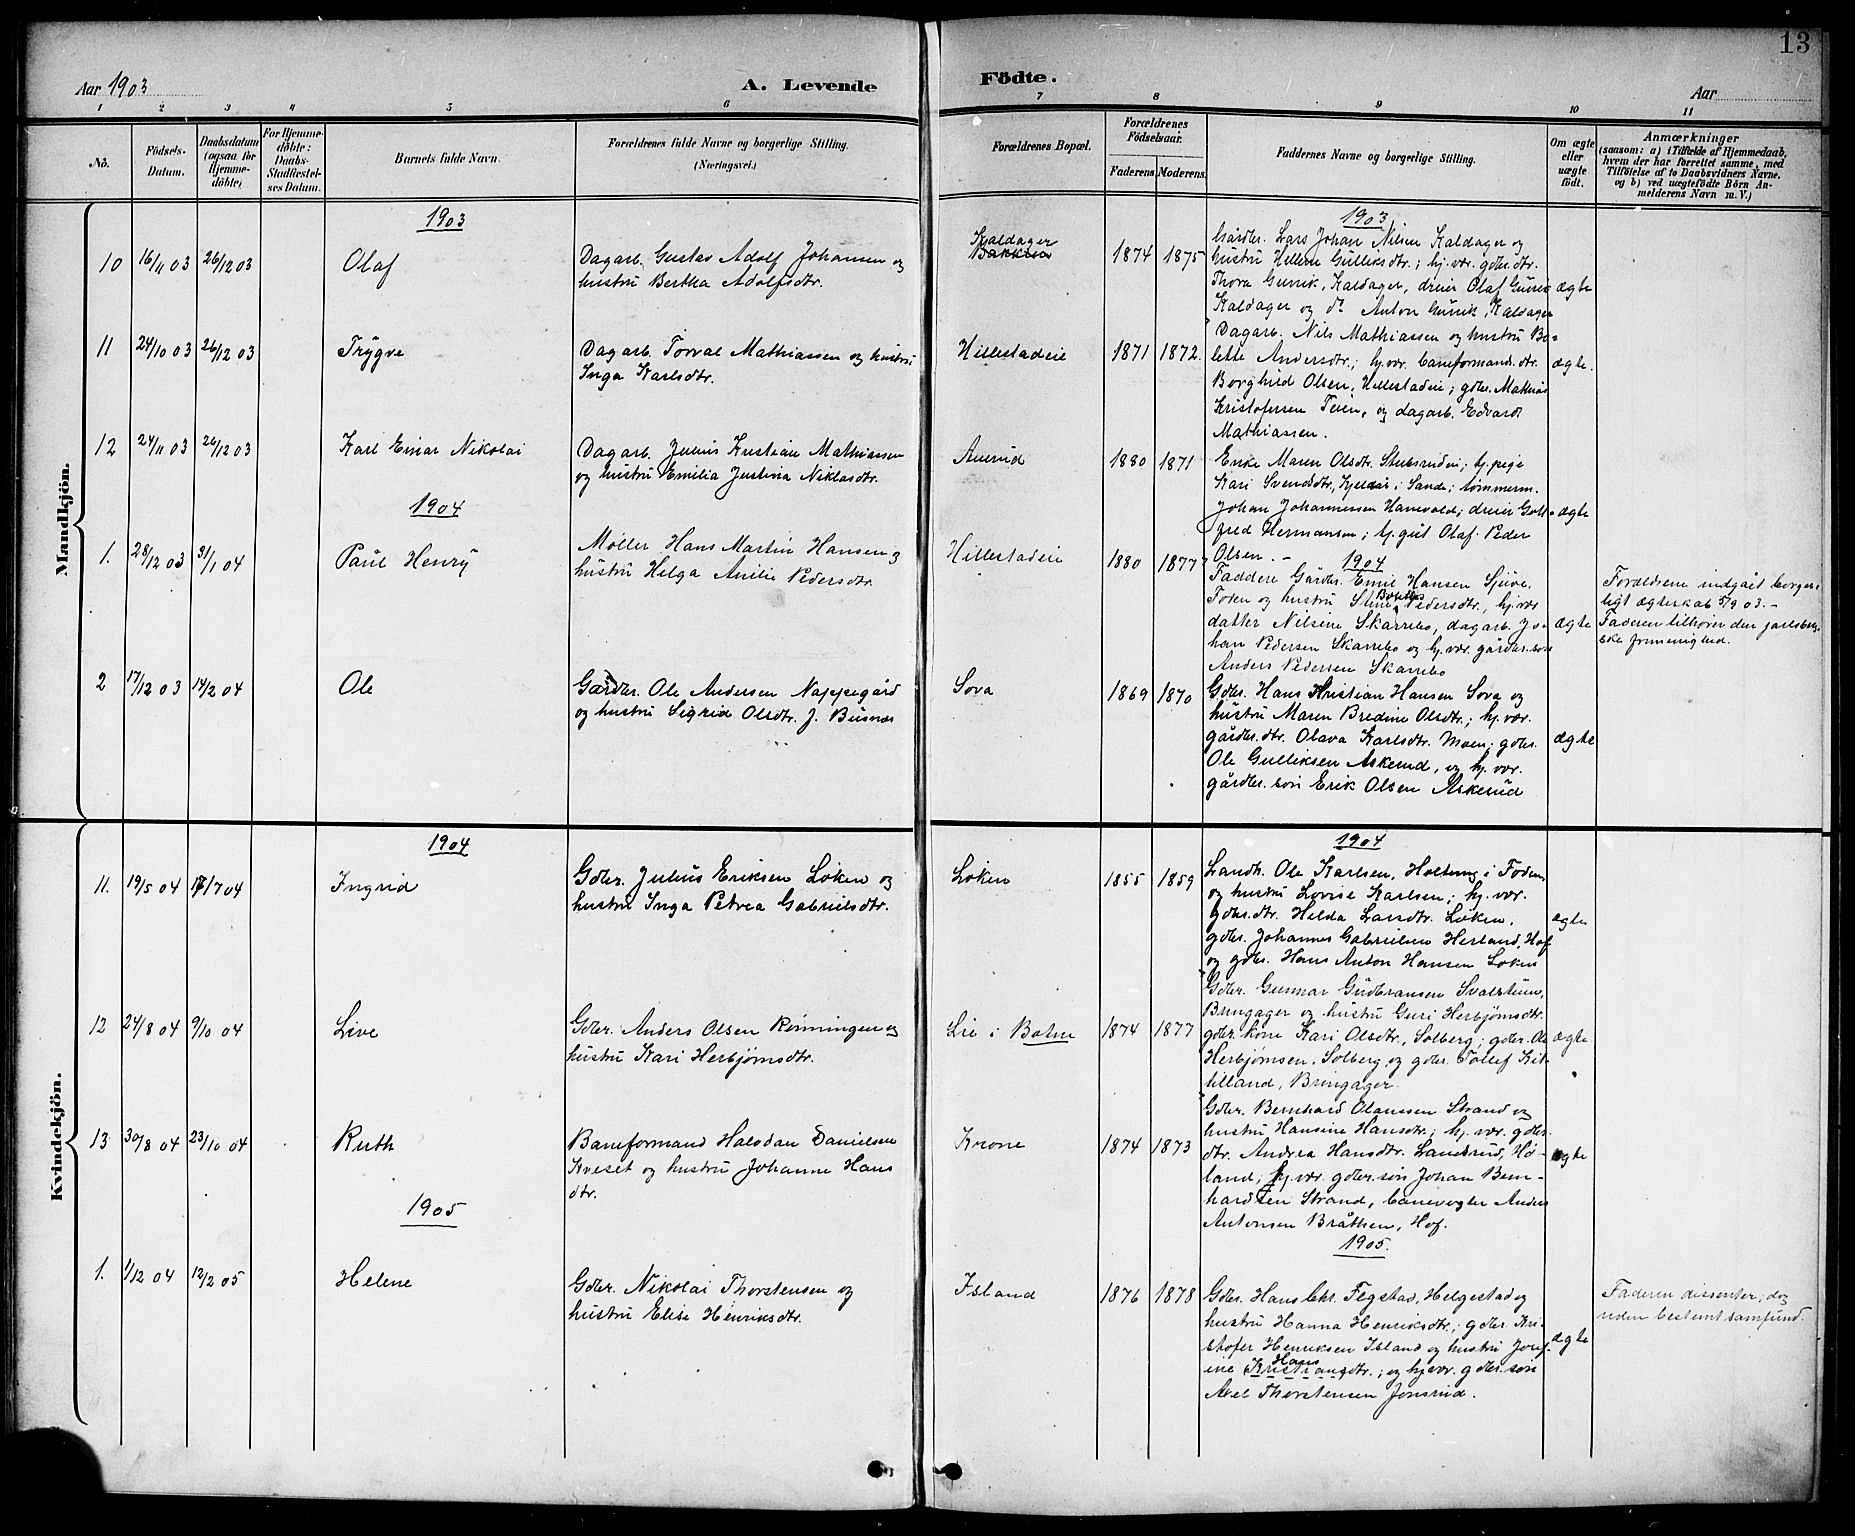 13
Aar 1903
A. Levende
Födte.
Aar
1 2 3 4 5 6 7 8 9 10 11
No.
Födsels-Datum.
Daabsdatum (ogsaa for Hjemme-döbte)
For Hjemme-döbte: Daabs-Stadfæstel-ses Datum.
Barnets fulde Navn.
Forældrenes fulde Navne og borgerlige Stilling. (Næringsvei.)
Forældrenes Bopæl.
Forældrenes Födselsaar.
Faderens Moderens.
Faddernes Navne og borgerlige Stilling.
Om ægte eller uægte födt.
Anmærkninger
(saasom: a) i Tilfælde af Hjemmedaab,
hvem der har forrettet samme, med
Tilföielse af to Daabsvidners Navne,
og b) ved uægtefödte Börn An-
melderens Navn m. V.)
Mandkjön.
1903
1903
10 16/11 03 26/12 03 Olaf
Dagarb. Gustav Adolf Johansen og
hustru Bertha Adolfsdtr.
Kaldager
Bakken
1874 1875
Gårdbr. Lars Johan Nilsen Kaldager og
hustru Helline Gulliksdtr.; hj.vær. gdbr.dtr.
Thora Gunnik, Kaldager, dreier Olaf
Kaldager og do Anton Kaldager
ægte
11 24/10 03 26/12 03 Trygve
Dagarb. Torval Mathiassen og hustru
Inga Karlsdtr.
Hillestadeie
1871 1872.
Dagarb. Nils Mathiassen og hustru Bo-
lette Andersdtr.; hj.vær. baneformand.dtr.
Borghild Olsen, Hillestadeie; gdbr. Mathias
Kristofersen Teien, og dagarb. Edvardt
Mathiassen.
ægte.
12 24/11 03 26/12 03 Karl Einar Nikolai
Dagarb. Julius Kristian Mathiassen
og hustru Emilia Justina Niklasdtr.
Auerud
1880 1871
Enke Maren Olsdtr. Stubsrudei; tj.pige
Kari Svendsdtr, i Sande; tømmerm.
Johan Johannessen Hanevold; dreier Gott-
fred Hermansen; tj.gut Olaf Peder
Olsen. –
ægte
1904
1904
1. 28/12 03 31/1 04 Paul Henry
Møller Hans Martin Hansen og
hustru Helga Amilie Pedersdtr.
Hillestadeie
1880 1877
Faddere Gårdbr. Emil Hansen
Foten og hustru Stine Bolette Pedersdtr., hj.vær
datter Nilsine Skarrebo, dagarb. Jo-
han Pedersen Skarrebo og hj.vær. gårdbr.søn
Anders Pedersen Skarrebo
ægte
Forældrene indgået borger-
ligt ægteskab 5/9 03. –
Faderen tilhører den jarlsberg-
ske frimenighed.
2 17/12 03 14/2 04 Ole
Gårdbr. Ole Andersen Nappegård
og hustru Sigrid Olsdtr. J. Busnæs
Sova
1869 1870
Gdbr. Hans Kristian Hansen Sova og
hustru Maren Bredine Olsdtr.; hj.vær.
gårdbr.dtr. Olava Karlsdtr. Moen; gdbr.
Ole Gulliksen Askerud, og hj.vær.
gårdbr.søn Erik Olsen Askerud
ægte
Kvindekjön.
1904
1904
11. 19/5 04 17/7 04 Ingrid
Gdbr. Julius Eriksen Løken og
hustru Inga Petrea Gabrielsdtr.
Løken
1855 1859
Landh. Ole Karlsen, Holtung i Foden
og hustru Lovise Karlsen; hj.vær.
gdbr.dtr. Hilda Larsdtr. Løken,
gdbr. Johannes Gabrielsen Herland, Hof
og gdbr. Hans Anton Hansen Løken
ægte
12 24/8 04 9/10 04 Live
Gdbr. Anders Olsen Rønningen og
hustru Kari Herbjørnsdtr.
Lie i Botne
1874 1877
Gdbr. Gunnar Gudbransen
Bringager og hustru Guri Herbjørnsdtr.
gdbr.kone Kari Olsdtr., Solberg; gdbr. Ole
Herbjørnsen, Solberg og gdbr. Tollef Kit-
tilland, Bringager.
ægte
13 30/8 04 23/10 04 Ruth
Baneformand Halvdan Danielsen
Kveset og hustru Johanne Hans
dtr.
Krone
1874 1873
Gdbr. Bernhard Olaussen Strand og
hustru Hansine Hansdtr; hj.vær. gdbr.
dtr. Andrea Hansdtr. Landsrud, Hø-
land; hj.vær. gdbr.søn Johan Bern-
hardsen Strand, banevogter Anders
Antonsen Bråthen, Hof.
ægte
1905
1905.
1. 1/12 04 12/2 05 Helene
Gdbr. Nikolai Thorstensen og
hustru Elise Henriksdtr.
Island
1876 1878
Gdbr. Hans Chr. Tegstad, Helgestad og
hustru Hanna Henriksdtr.; gdbr. Kri-
stofer Henriksen Island og hustru Josef-
ine Hans Kristiansdtr.; og hj.vær. gdbr.søn
Axel Thorstensen Jonsrud.
ægte
Faderen dissenter; dog
uden bestemt samfund.